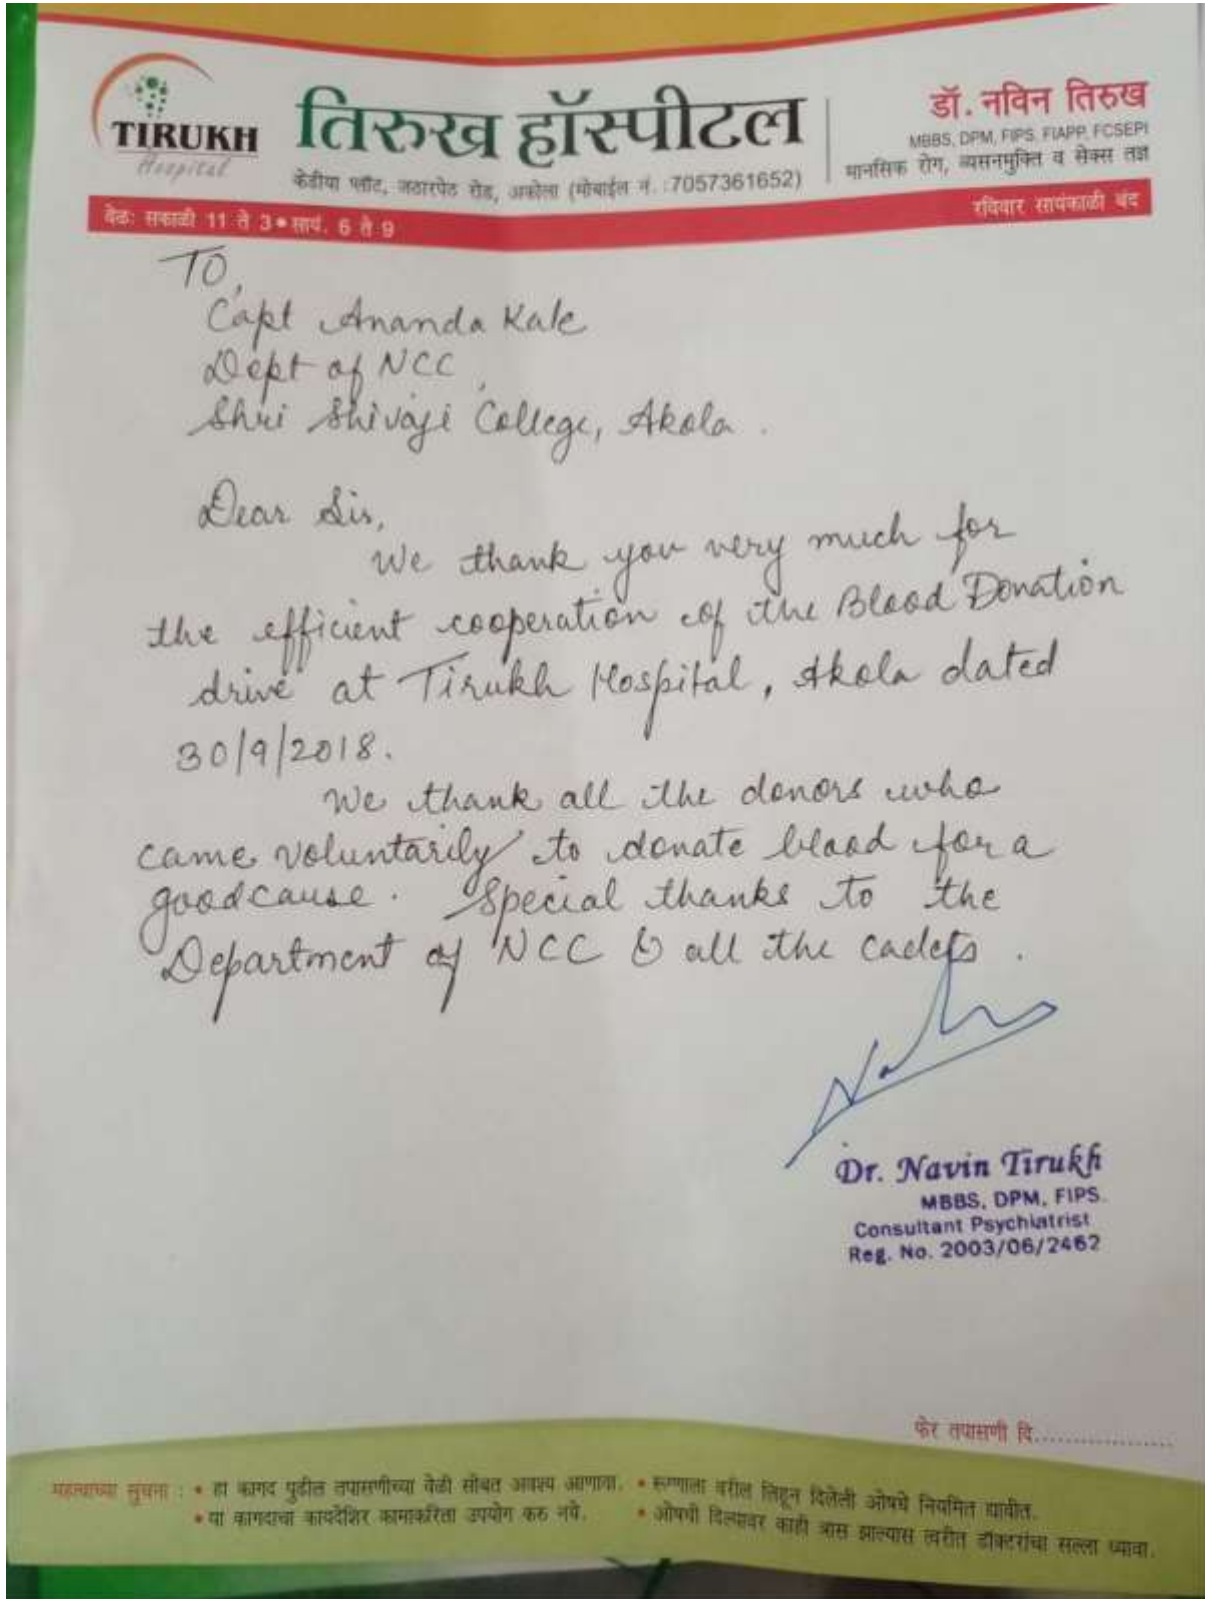 TIRUKH
Hospital
तिरुख हॉस्पीटल
केडीया प्लॉट, जठारपेठ रोड, अकोला (मोबाईल नं. :7057361652)
डॉ. नविन तिरुख
MBBS, DPM, FIPS, FIAPP, FCSEPI
मानसिक रोग, व्यसनमुक्ति व सेक्स तज्ञ
वेळ: सकाळी 11 ते 3 • सायं. 6 ते 9
रविवार सायंकाळी बंद
TO,
Capt Ananda Kale
Dept of NCC,
Shri Shivaji College, Akola.
Dear Sir,
We thank you very much for
the efficient cooperation of the Blood Donation
drive at Tirukh Hospital, Akola dated
30/9/2018.
We thank all the donors who
came voluntarily to donate blood for a
good cause. Special thanks to the
Department of NCC & all the cadets.
Dr. Navin Tirukh
MBBS, DPM, FIPS.
Consultant Psychiatrist
Reg. No. 2003/06/2462
फेर तपासणी दि....................
महत्वाच्या सुचना : • हा कागद पुढील तपासणीच्या वेळी सोबत अवश्य आणावा. • रूग्णाला वरील लिहून दिलेली औषधे नियमित द्यावीत.
• या कागदाचा कायदेशिर कामाकरिता उपयोग करु नये. • औषधी दिल्यावर काही त्रास झाल्यास त्वरीत डॉक्टरांचा सल्ला घ्यावा.